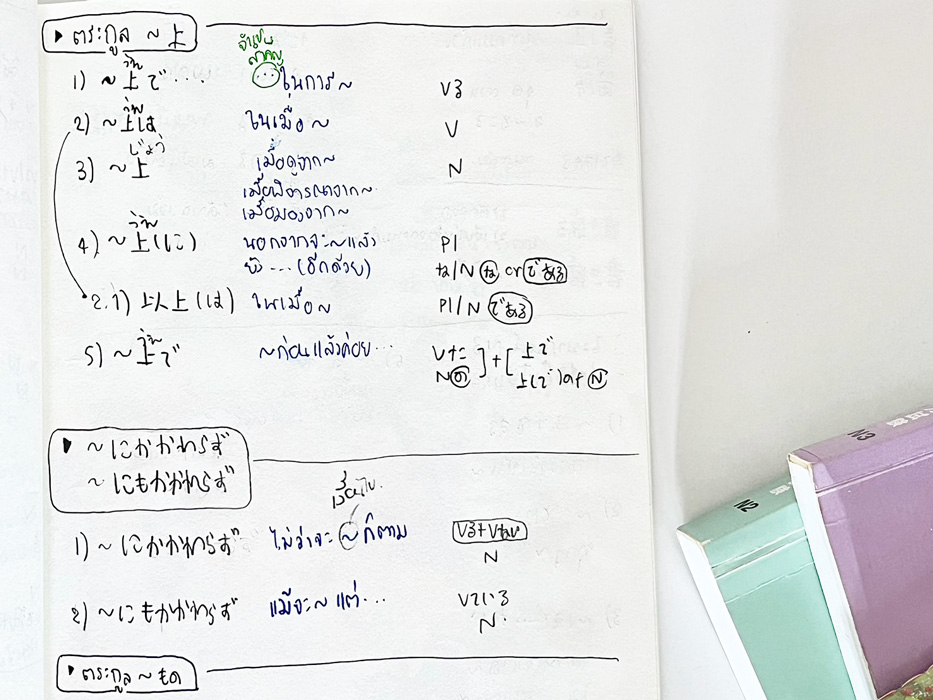 ▸ ตระกูล ~上
จำเป็น
สำคัญ
1) ~上で.... (...) ในการ~ V3
うえ
2) ~上は ในเมื่อ~ V
うえ
じょう
3) ~上 เมื่อดูจาก~ N
เมื่อพิจารณาจาก~
เมื่อมองจาก~
うえ
4) ~上(に) นอกจากจะ~แล้ว Pl
ยัง...(อีกด้วย) な/N な or である
2.1) 以上(は) ในเมื่อ~ Pl/N である
うえ
5) ~上で ~ก่อนแล้วค่อย... Vた ] + [ 上で
Nの 上(で)の+N
▸ ~にかかわらず
~にもかかわらず
เงื่อนไข
1) ~にかかわらず ไม่ว่าจะ~ก็ตาม V3+Vない
N
2) ~にもかかわらず แม้จะ~แต่... Vている
N
▸ ตระกูล ~もの
N2
N3